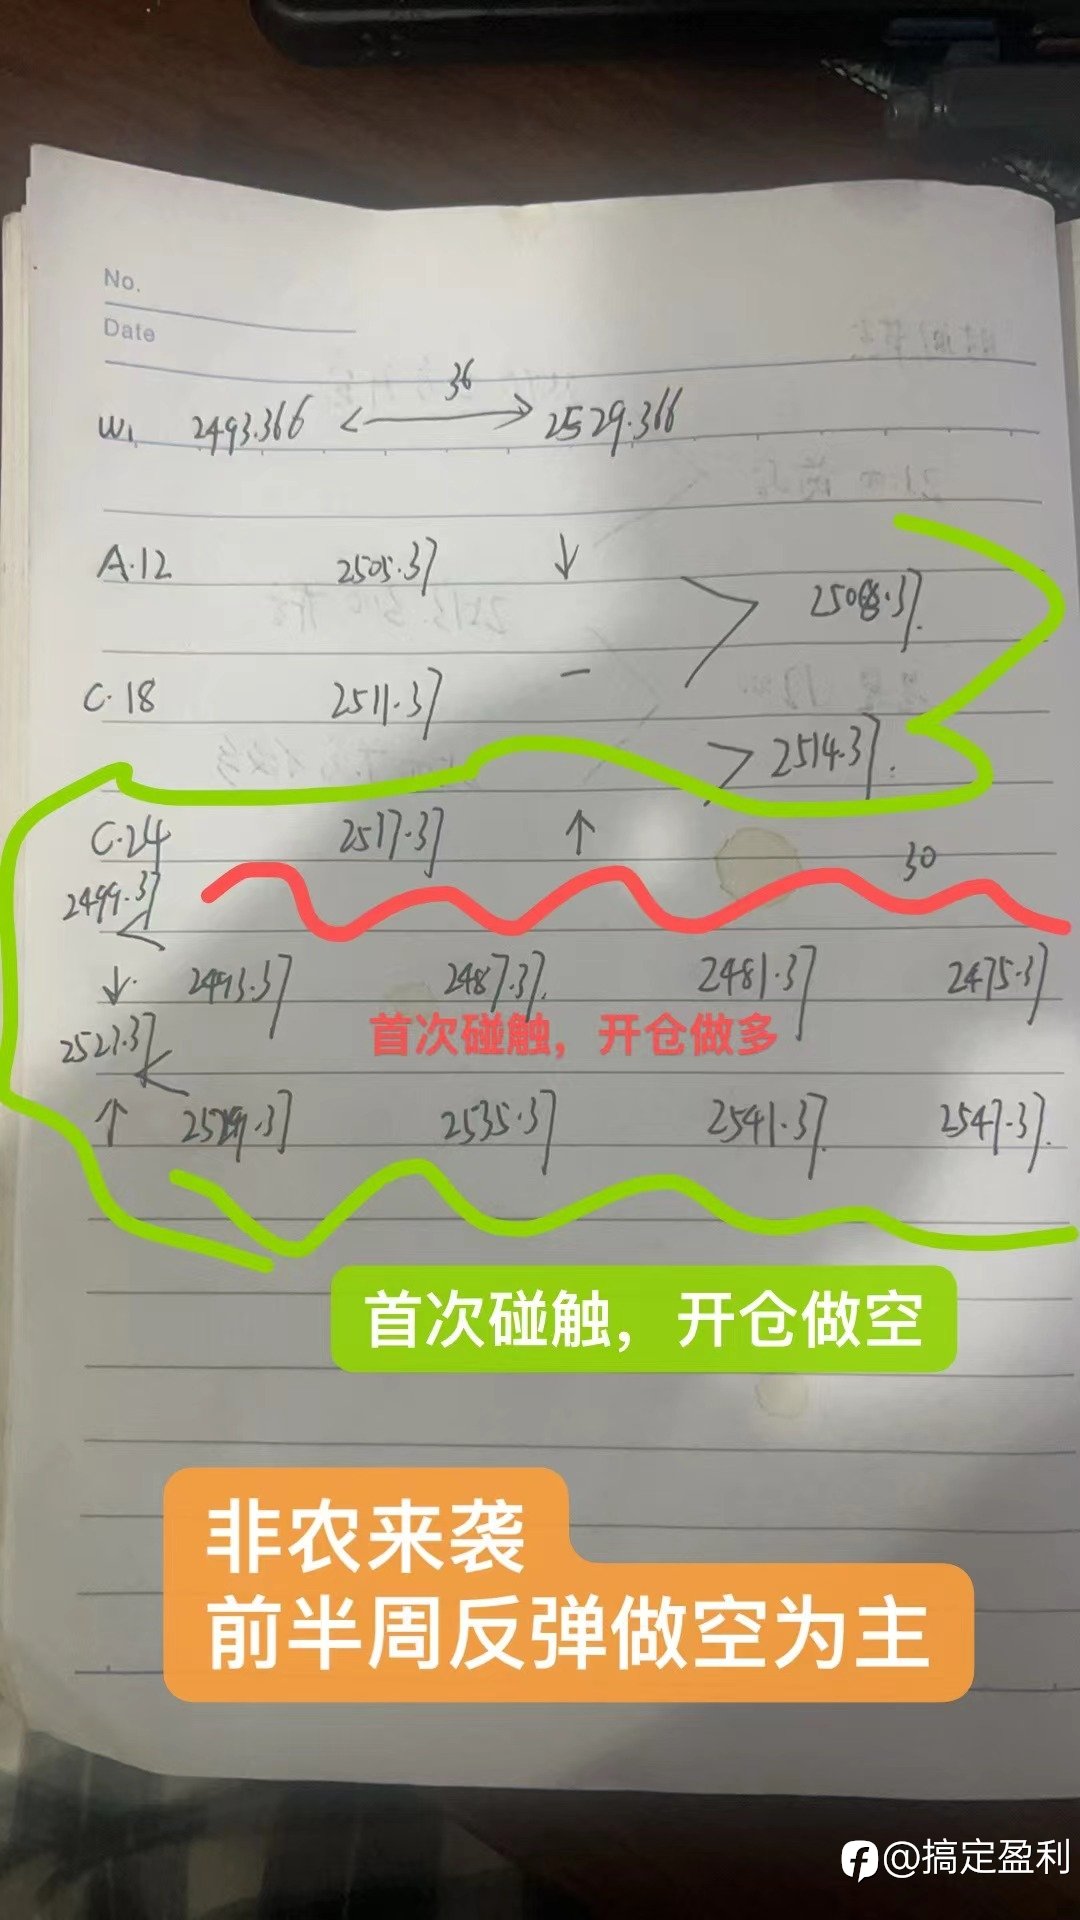 No.
Date
36
W1 2493.366 <—> 2529.366
A.12 2505.37 ↓
2508.37.
C.18 2511.37 —
> 2514.37.
C.24 2517.37 ↑
30
2499.37
↓. 2493.37 2487.37. 2481.37 2475.37
首次碰触，开仓做多
2523.37
↑ 2529.37 2535.37 2541.37. 2547.37.
首次碰触，开仓做空
非农来袭
前半周反弹做空为主
@搞定盈利